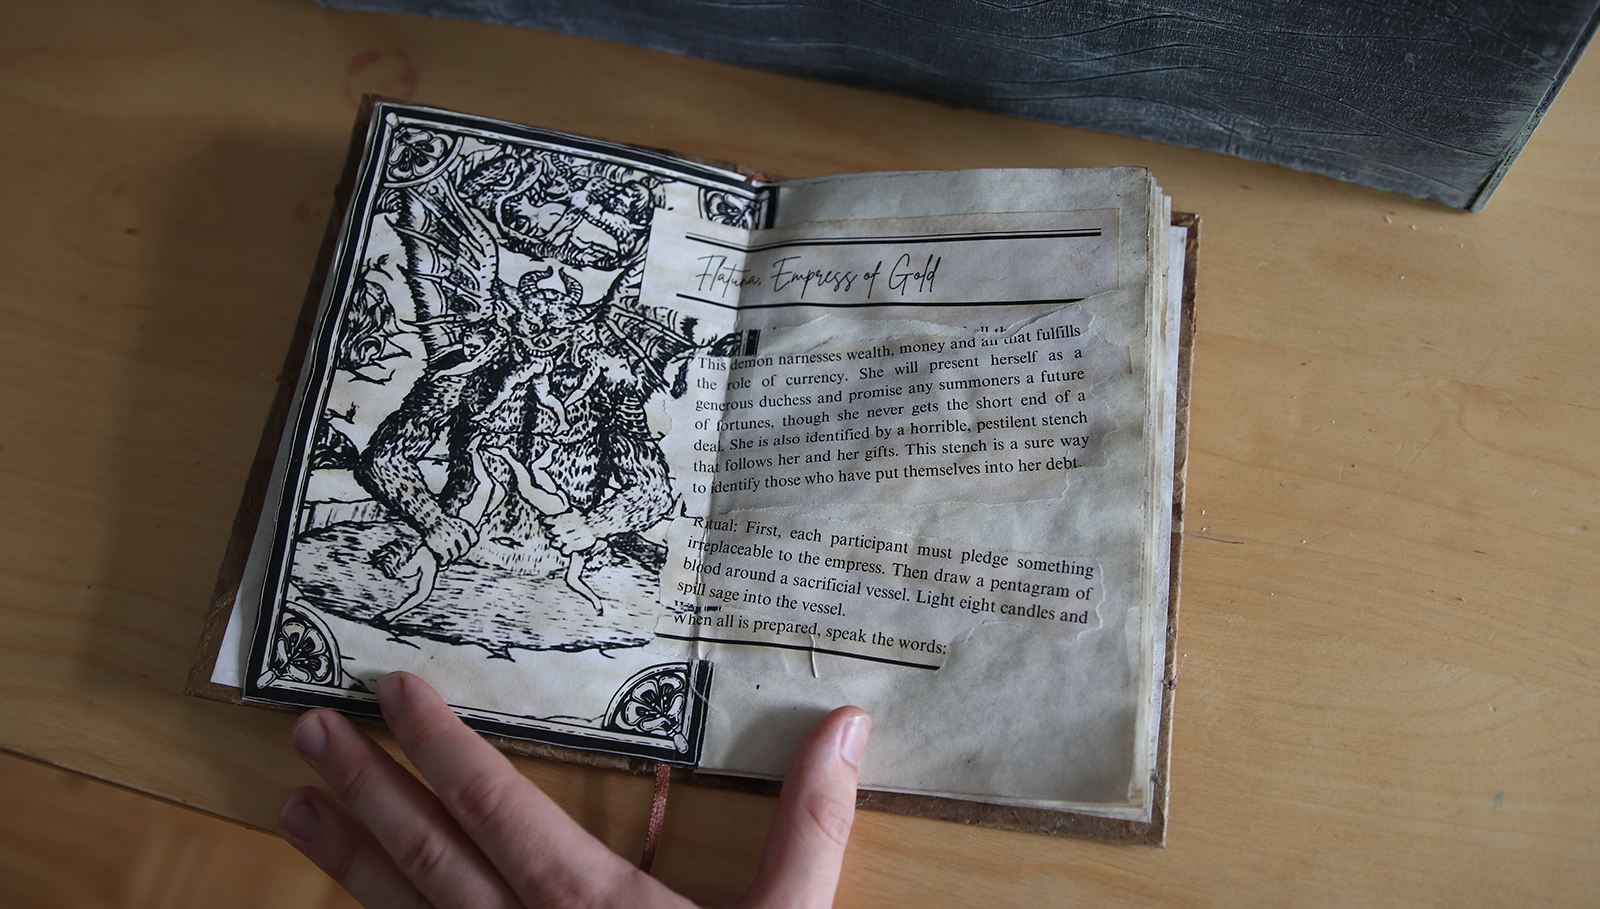 Flatuna, Empress of Gold
This demon harnesses wealth, money and all that fulfills
the role of currency. She will present herself as a
generous duchess and promise any summoners a future
of fortunes, though she never gets the short end of a
deal. She is also identified by a horrible, pestilent stench
that follows her and her gifts. This stench is a sure way
to identify those who have put themselves into her debt.
Ritual: First, each participant must pledge something
irreplaceable to the empress. Then draw a pentagram of
blood around a sacrificial vessel. Light eight candles and
spill sage into the vessel.
When all is prepared, speak the words: